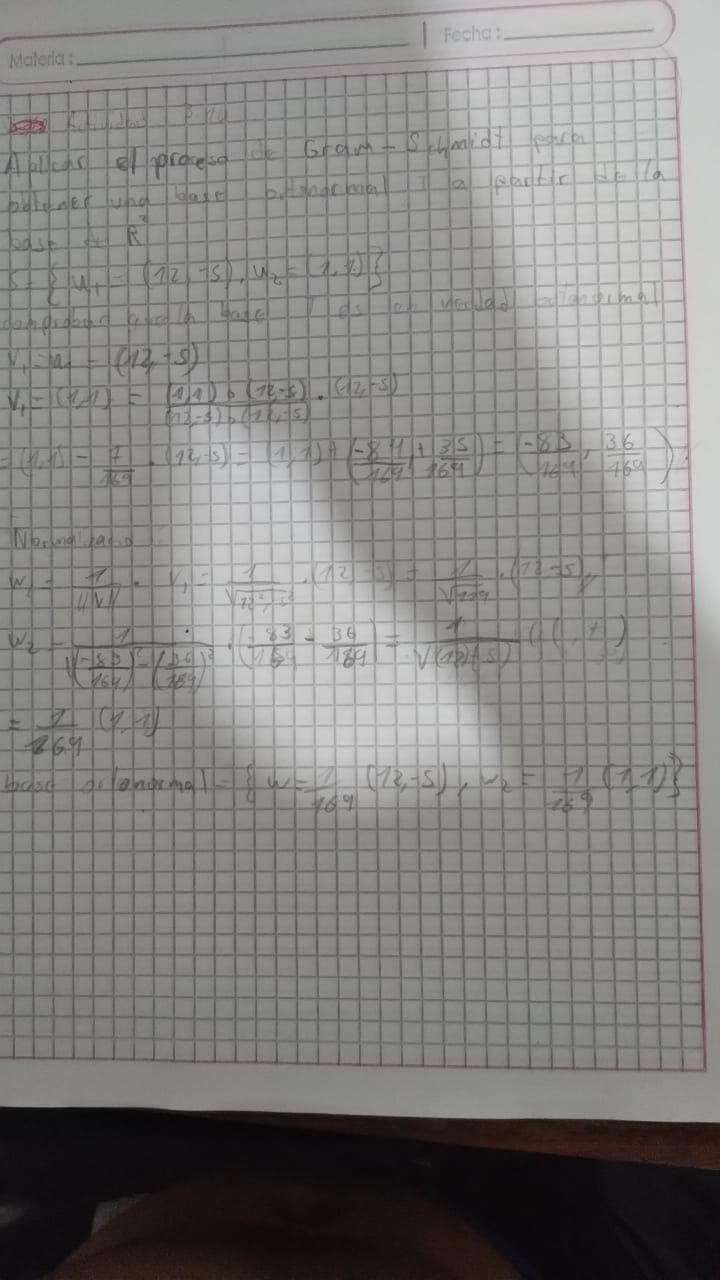 Materia: Fecha:
Actividad
Aplicar el proceso de Gram - Schmidt para
obtener una base ortonormal T a partir de la
base de R²
S = { u₁ = (12, -5), u₂ = (1, 1) }
comprobar que la base T es en verdad ortonormal
V₁ = u₁ = (12, -5)
V₁ = (1,1) = (1,1) o (12,-5) / (12,-5) o (12,-5) · (12,-5)
= (1,1) - 7/169 · (12,-5) = (1,1) + (-84/169 + 35/169) = (-83/169, 36/169)
Normalizado
W₁ = 1/||V|| · V₁ = · (12, -5) = · (12 -5)
W₂ = · (-83/169 - 36/169) =
= 1/169 (1,1)
base ortonormal = { w = 1/169 (12,-5), w₂ = 1/169 (1,1) }